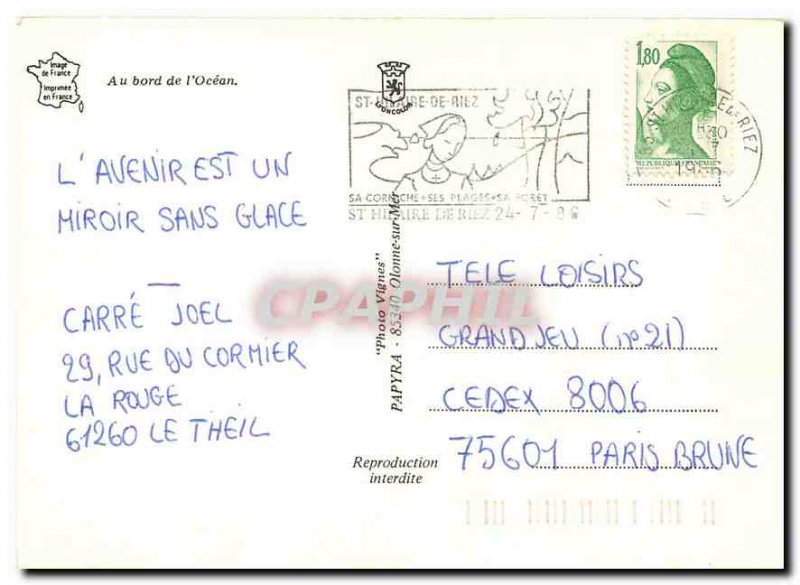 Image
de France
Imprimée
en France
Au bord de l'Océan.
L'AVENIR EST UN
MIROIR SANS GLACE
CARRÉ JOEL
29, RUE DU CORMIER
LA ROUGE
61260 LE THEIL
ST-HILAIRE-DE-RIEZ
SA CORNICHE•SES PLAGES•SA FORET
ST HILAIRE DE RIEZ 24-7-86
1,80
REPUBLIQUE FRANÇAISE
"Photo Vignes"
PAPYRA - 85340 Olonne-sur-Mer
CPAPHIL
TELE LOISIRS
GRAND JEU (n°21)
CEDEX 8006
75601 PARIS BRUNE
Reproduction
interdite